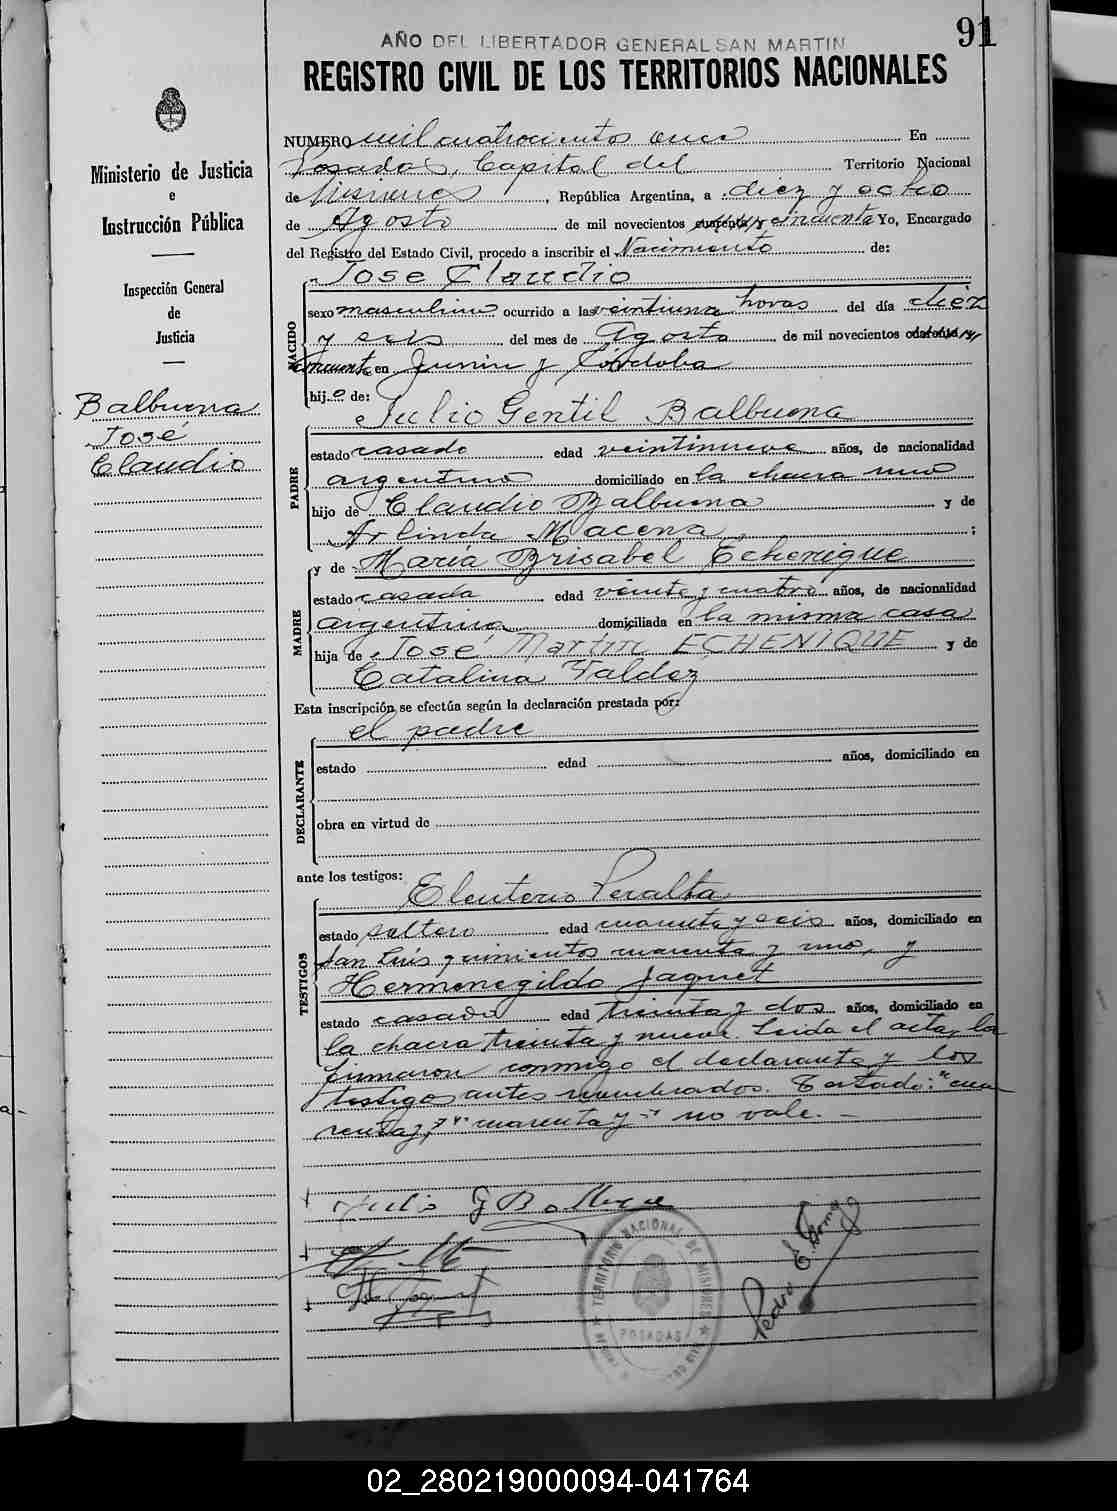 91
AÑO DEL LIBERTADOR GENERAL SAN MARTIN
REGISTRO CIVIL DE LOS TERRITORIOS NACIONALES
Ministerio de Justicia
e
Instrucción Pública
Inspección General
de
Justicia
Balbuena
José
Claudio
NUMERO mil cuatrocientos once En
Posadas, Capital del Territorio Nacional
de Misiones, República Argentina, a diez y ocho
de Agosto de mil novecientos cuarenta y cincuenta Yo, Encargado
del Registro del Estado Civil, procedo a inscribir el Nacimiento de:
Jose Claudio
NACIDO
sexo masculino ocurrido a las veintiuna horas del día diez
y seis del mes de Agosto de mil novecientos cuarenta y
cincuenta en Junin y Córdoba
hijo de:
Julio Gentil Balbuena
PADRE
estado casado edad veintinueve años, de nacionalidad
argentino domiciliado en la chacra uno
hijo de Claudio Balbuena y de
Arlinda Macena ;
y de María Brisabel Echenique
MADRE
estado casada edad veinte y cuatro años, de nacionalidad
argentina domiciliada en la misma casa
hija de José Martin ECHENIQUE y de
Catalina Valdez
Esta inscripción se efectúa según la declaración prestada por:
el padre
DECLARANTE
estado edad años, domiciliado en
obra en virtud de
ante los testigos:
Eleuterio Peralta
TESTIGOS
estado soltero edad cuarenta y seis años, domiciliado en
San Luis quinientos cuarenta y uno, y
Hermenegildo Jaquet
estado casado edad treinta y dos años, domiciliado en
la chacra treinta y nueve. Leida el acta, la
firmaron conmigo el declarante y los
testigos antes nombrados. Testado: "cua
renta y" "cuarenta y" no vale.-
Julio G Balbuena
TERRITORIO NACIONAL DE MISIONES
POSADAS
Pedro E.
02_280219000094-041764